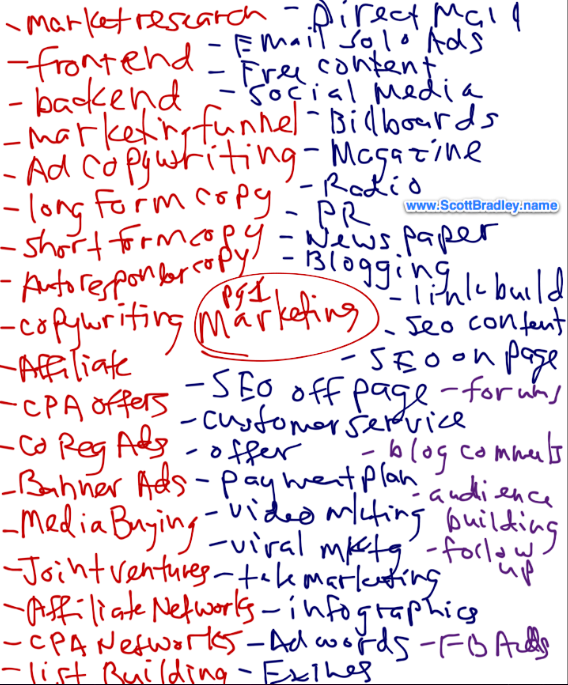 - market research
- frontend
- backend
- marketing funnel
- Ad copywriting
- long form copy
- short form copy
- Autoresponder copy
- copywriting
- Affiliate
- CPA offers
- Co Reg Ads
- Banner Ads
- Media Buying
- Joint ventures
- Affiliate Networks
- CPA Networks
- list Building
pg1
Marketing
- Direct Mail
- Email Solo Ads
- Free content
- Social Media
- Billboards
- Magazine
- Radio
www.ScottBradley.name
- PR
- News paper
- Blogging
- link build
- seo content
- SEO on page
- SEO off page
- customer service
- offer
- payment plan
- video mkting
- viral mktg
- telemarketing
- infographics
- Ad words
- forums
- blog comments
- audience
building
- follow
up
- FB Ads